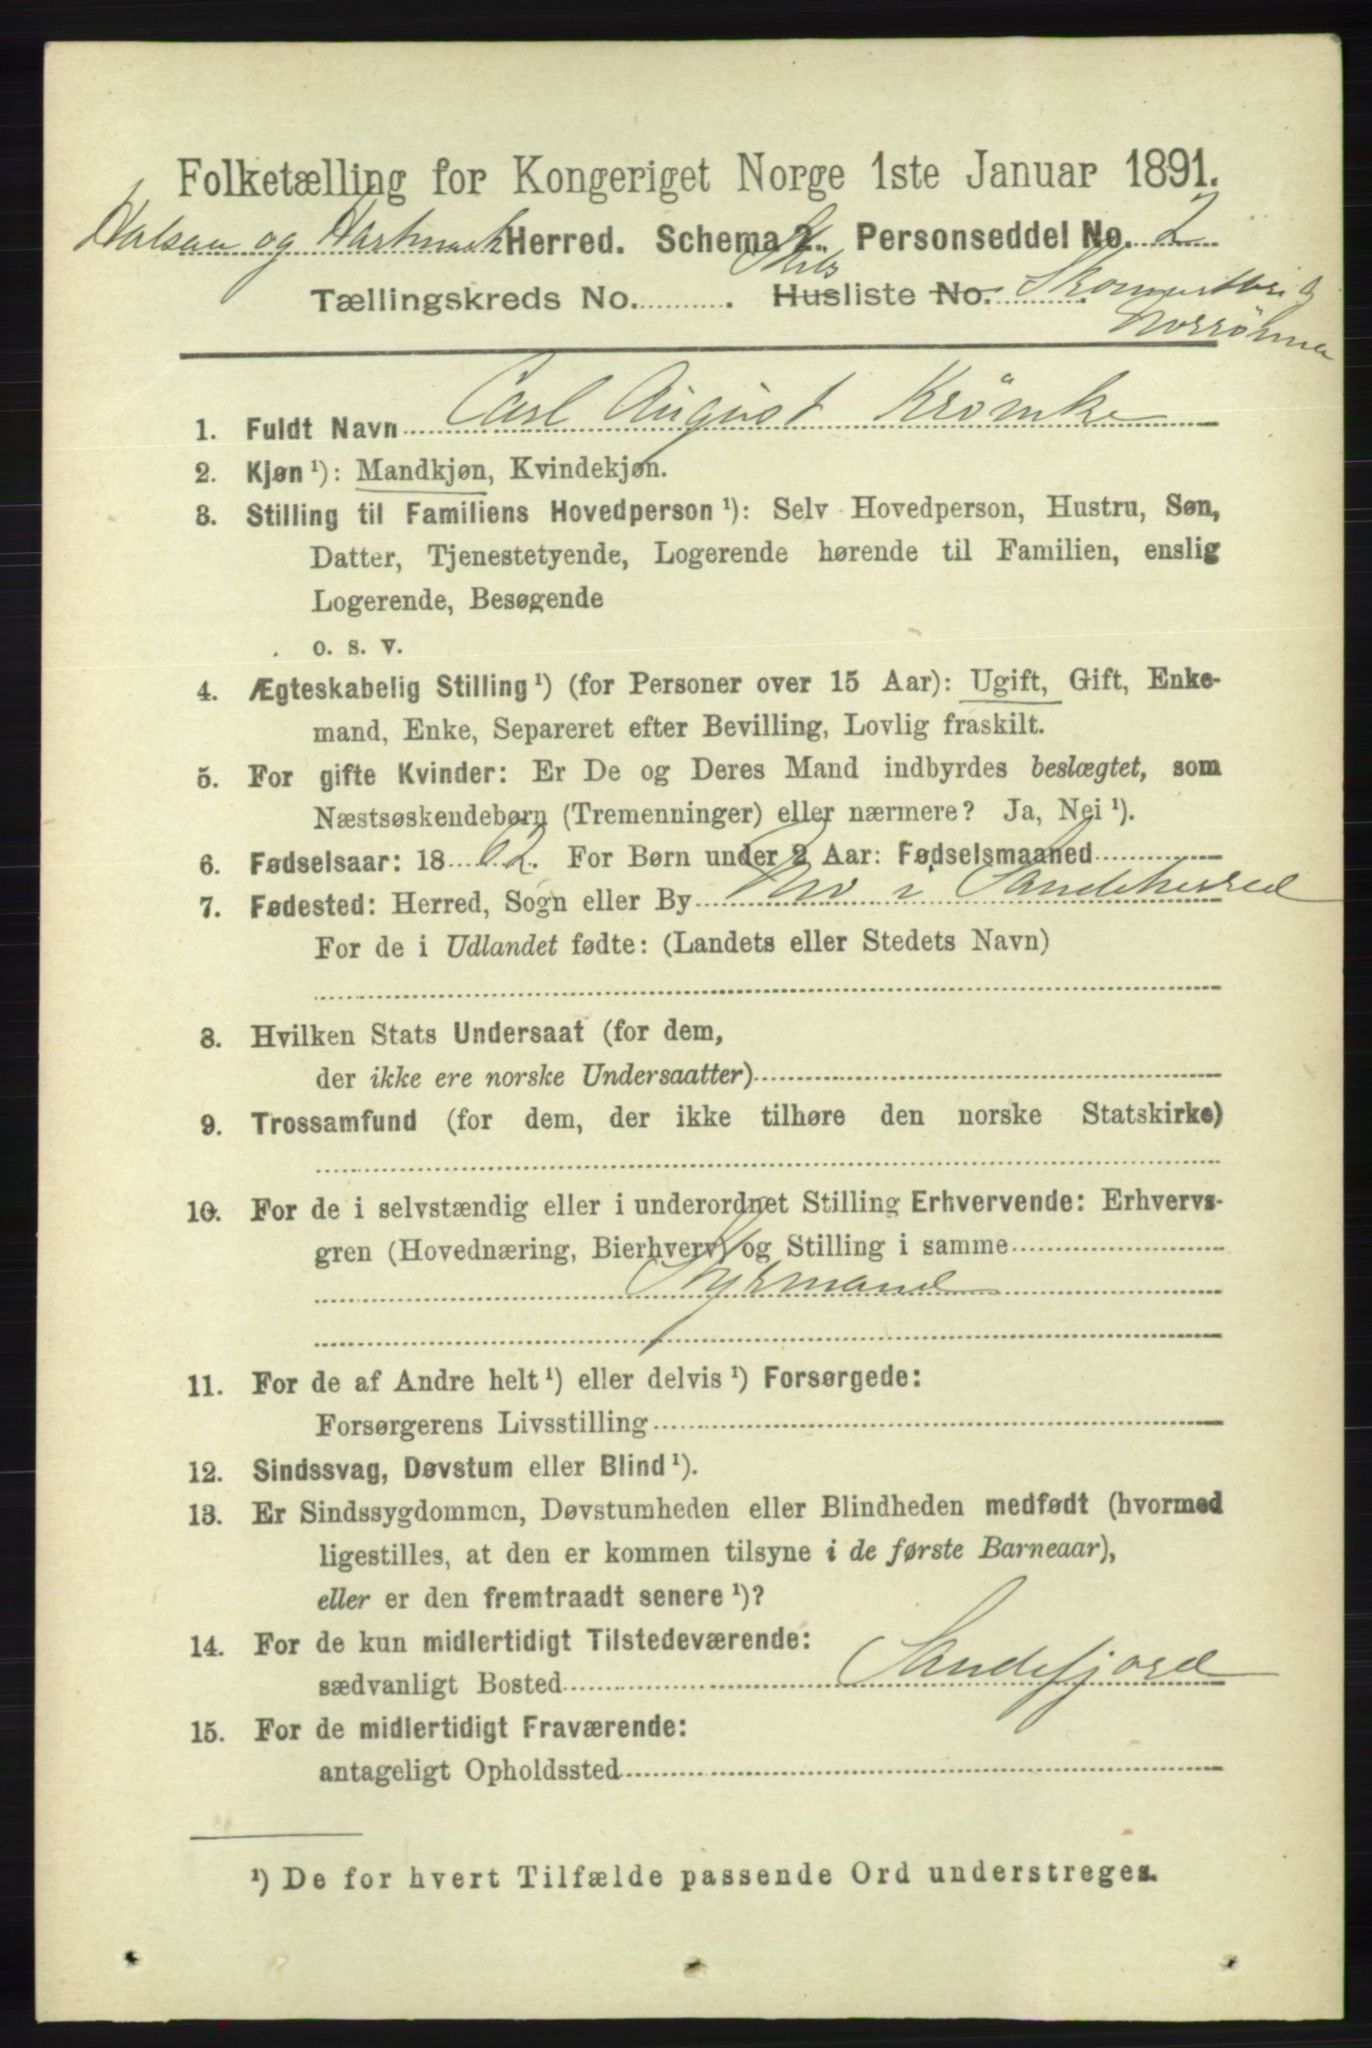 Folketælling for Kongeriget Norge 1ste Januar 1891.
Halsaa og Hartmark Herred. Schema 2. Personseddel No. 2
Tællingskreds No. . Skibs Husliste No.
Norröna
1. Fuldt Navn Carl August Krömke
2. Kjøn ¹): Mandkjøn, Kvindekjøn.
3. Stilling til Familiens Hovedperson ¹): Selv Hovedperson, Hustru, Søn,
Datter, Tjenestetyende, Logerende hørende til Familien, enslig
Logerende, Besøgende
o. s. v.
4. Ægteskabelig Stilling ¹) (for Personer over 15 Aar): Ugift, Gift, Enke-
mand, Enke, Separeret efter Bevilling, Lovlig fraskilt.
5. For gifte Kvinder: Er De og Deres Mand indbyrdes beslægtet, som
Næstsøskendebørn (Tremenninger) eller nærmere? Ja, Nei ¹).
6. Fødselsaar: 18 62. For Børn under 2 Aar: Fødselsmaaned
7. Fødested: Herred, Sogn eller By Mo i Sandeherred
For de i Udlandet fødte: (Landets eller Stedets Navn)
8. Hvilken Stats Undersaat (for dem,
der ikke ere norske Undersaatter)
9. Trossamfund (for dem, der ikke tilhøre den norske Statskirke)
10. For de i selvstændig eller i underordnet Stilling Erhvervende: Erhvervs-
gren (Hovednæring, Bierhverv) og Stilling i samme
Styrmand
11. For de af Andre helt ¹) eller delvis ¹) Forsørgede:
Forsørgerens Livsstilling
12. Sindssvag, Døvstum eller Blind ¹).
13. Er Sindssygdommen, Døvstumheden eller Blindheden medfødt (hvormed
ligestilles, at den er kommen tilsyne i de første Barneaar),
eller er den fremtraadt senere ¹)?
14. For de kun midlertidigt Tilstedeværende:
sædvanligt Bosted Sandefjord
15. For de midlertidigt Fraværende:
antageligt Opholdssted
¹) De for hvert Tilfælde passende Ord understreges.